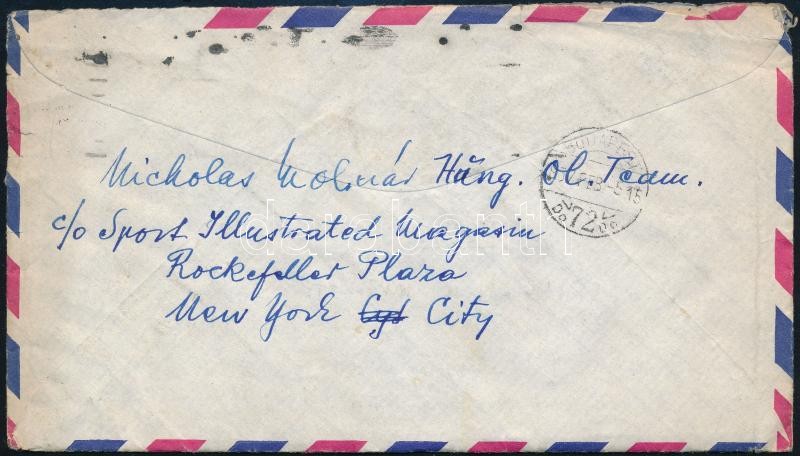 Nicholas Molnár Hung. Ol. Team.
c/o Sport Illustrated Magasin
Rockefeller Plaza
New York City
BUDAPEST
72
darabanth